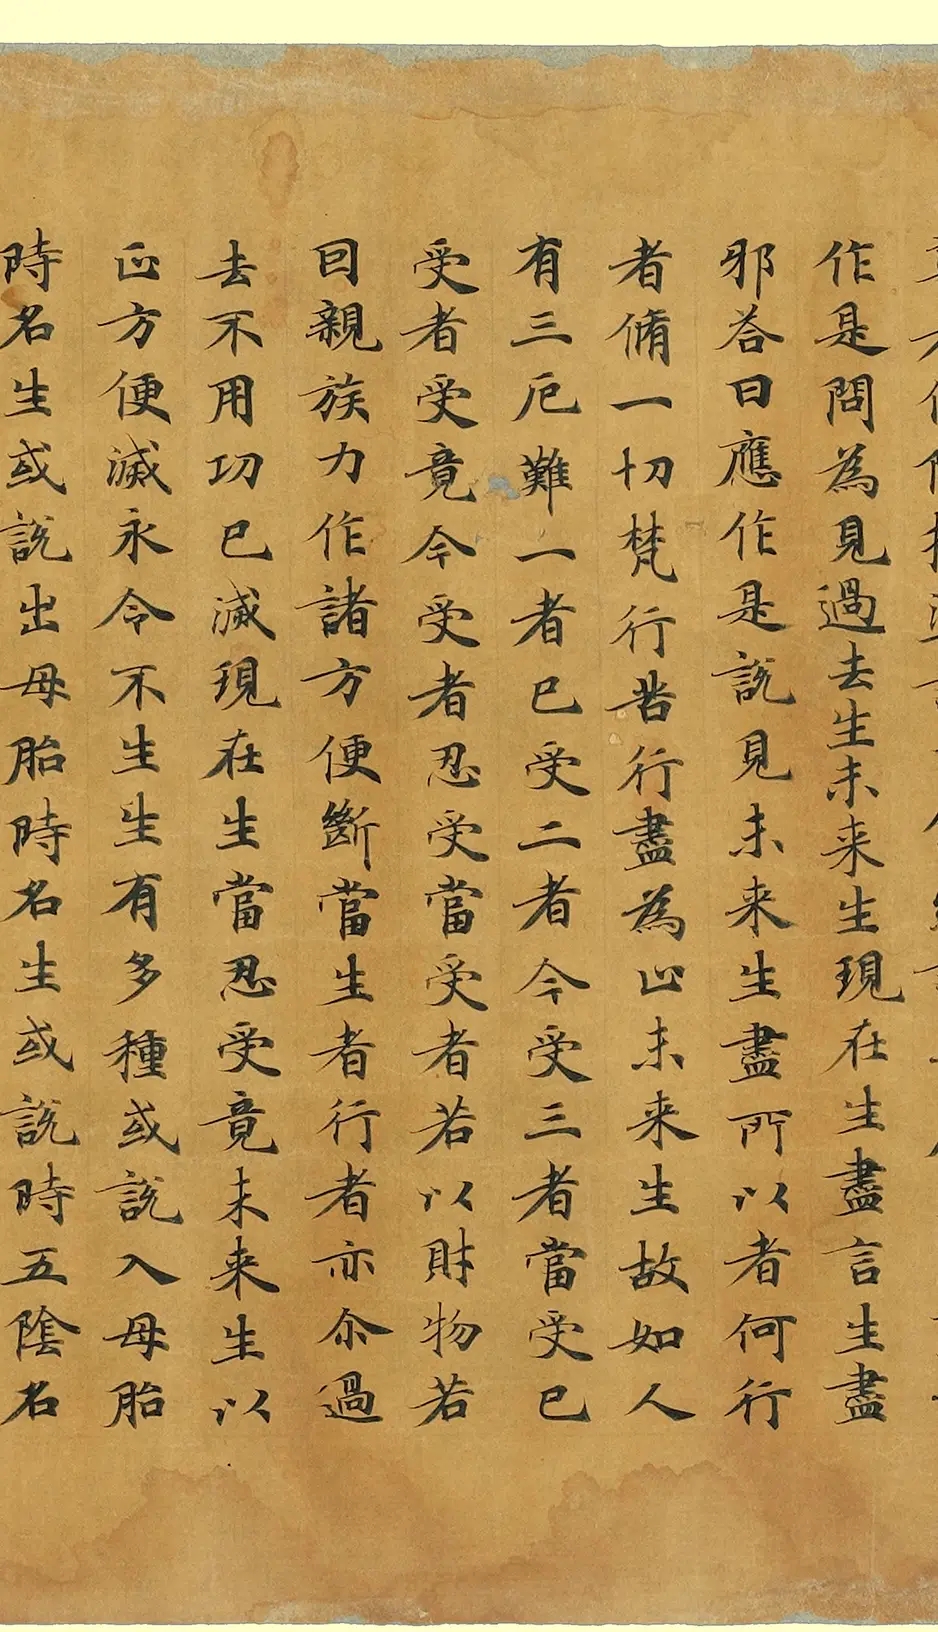 作是問為見過去生未来生現在生盡言生盡
邪荅曰應作是說見未来生盡所以者何行
者脩一切梵行苦行盡為止未来生故如人
有三厄難一者已受二者今受三者當受已
受者受竟今受者忍受當受者若以財物若
回親族力作諸方便斷當生者行者亦尒過
去不用功已滅現在生當忍受竟未来生以
正方便滅永令不生生有多種或說入母胎
時名生或說出母胎時名生或說時五陰名